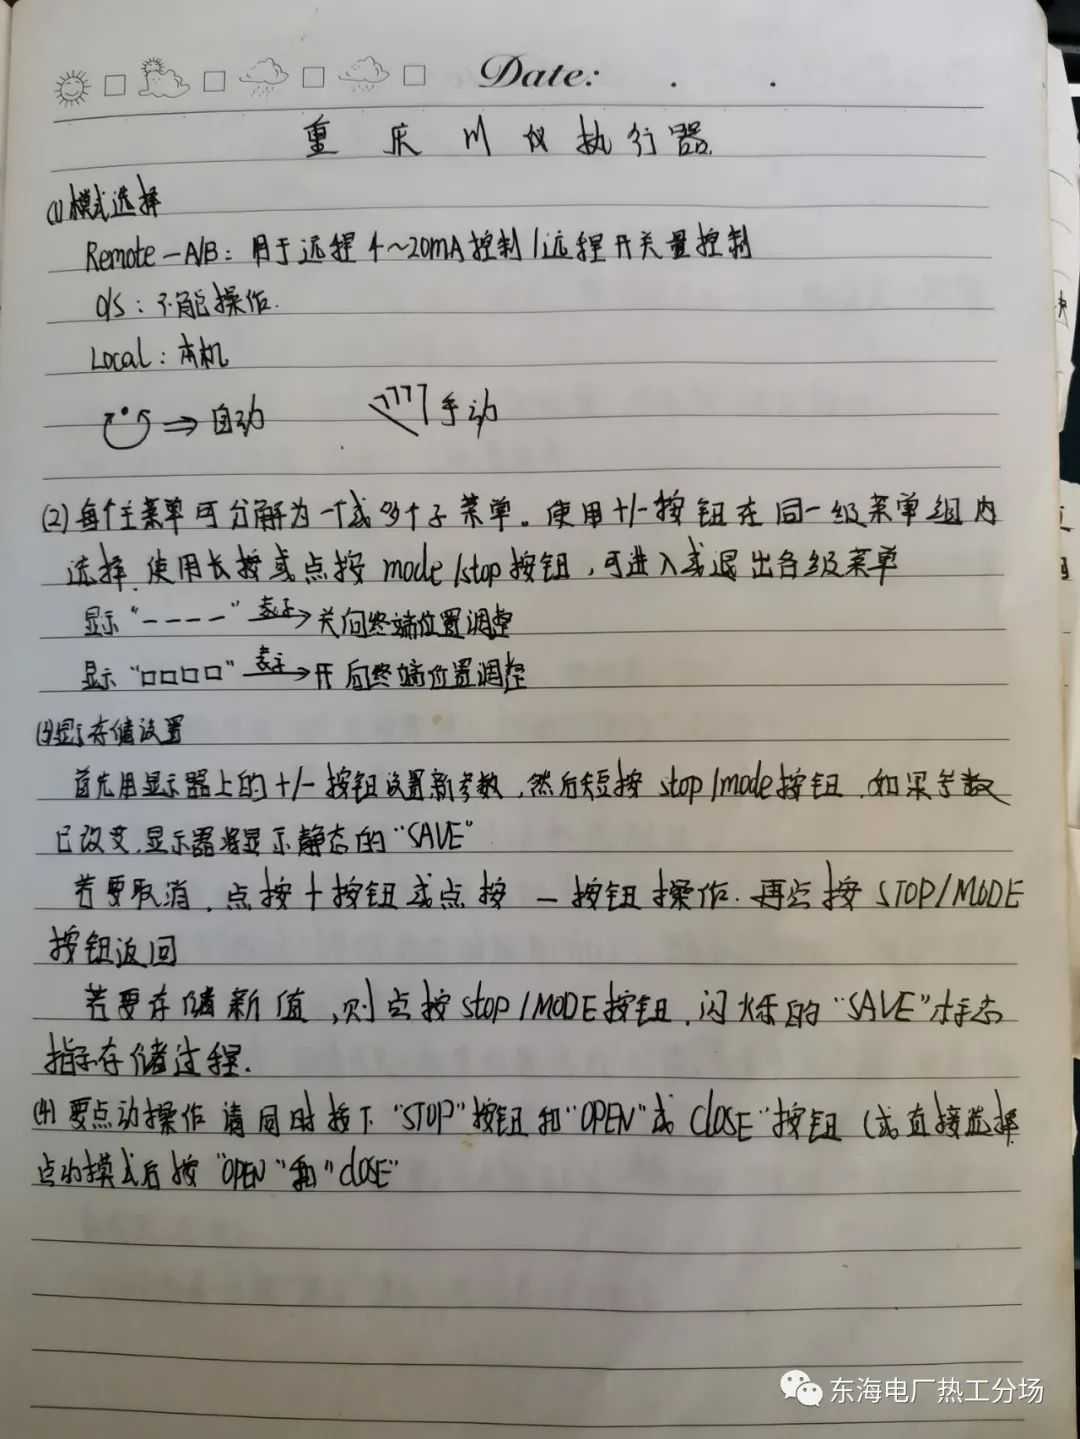 Date: . .
重庆川仪执行器
(1)模式选择
Remote-A/B:用于远程4~20mA控制/远程开关量控制
O/S:不能操作.
Local:本机
⇒自动 手动
(2)每个主菜单可分解为一个或多个子菜单。使用+/-按钮在同一级菜单组内
选择.使用长按或点按mode/stop按钮,可进入或退出各级菜单
显示"----" 表示→关向终端位置调整
显示"□□□□" 表示→开向终端位置调整
(3)显示存储设置
首先用显示器上的+/-按钮设置新参数,然后短按stop/mode按钮.如果参数
已改变.显示器将显示静态的"SAVE"
若要取消.点按+按钮或点按-按钮操作.再点按STOP/MODE
按钮返回
若要存储新值,则点按stop/MODE按钮.闪烁的"SAVE"标志
指示存储过程.
(4)要点动操作请同时按下"STOP"按钮和"OPEN"或CLOSE"按钮(或直接选择
点动模式后按"OPEN"和"CLOSE"
东海电厂热工分场